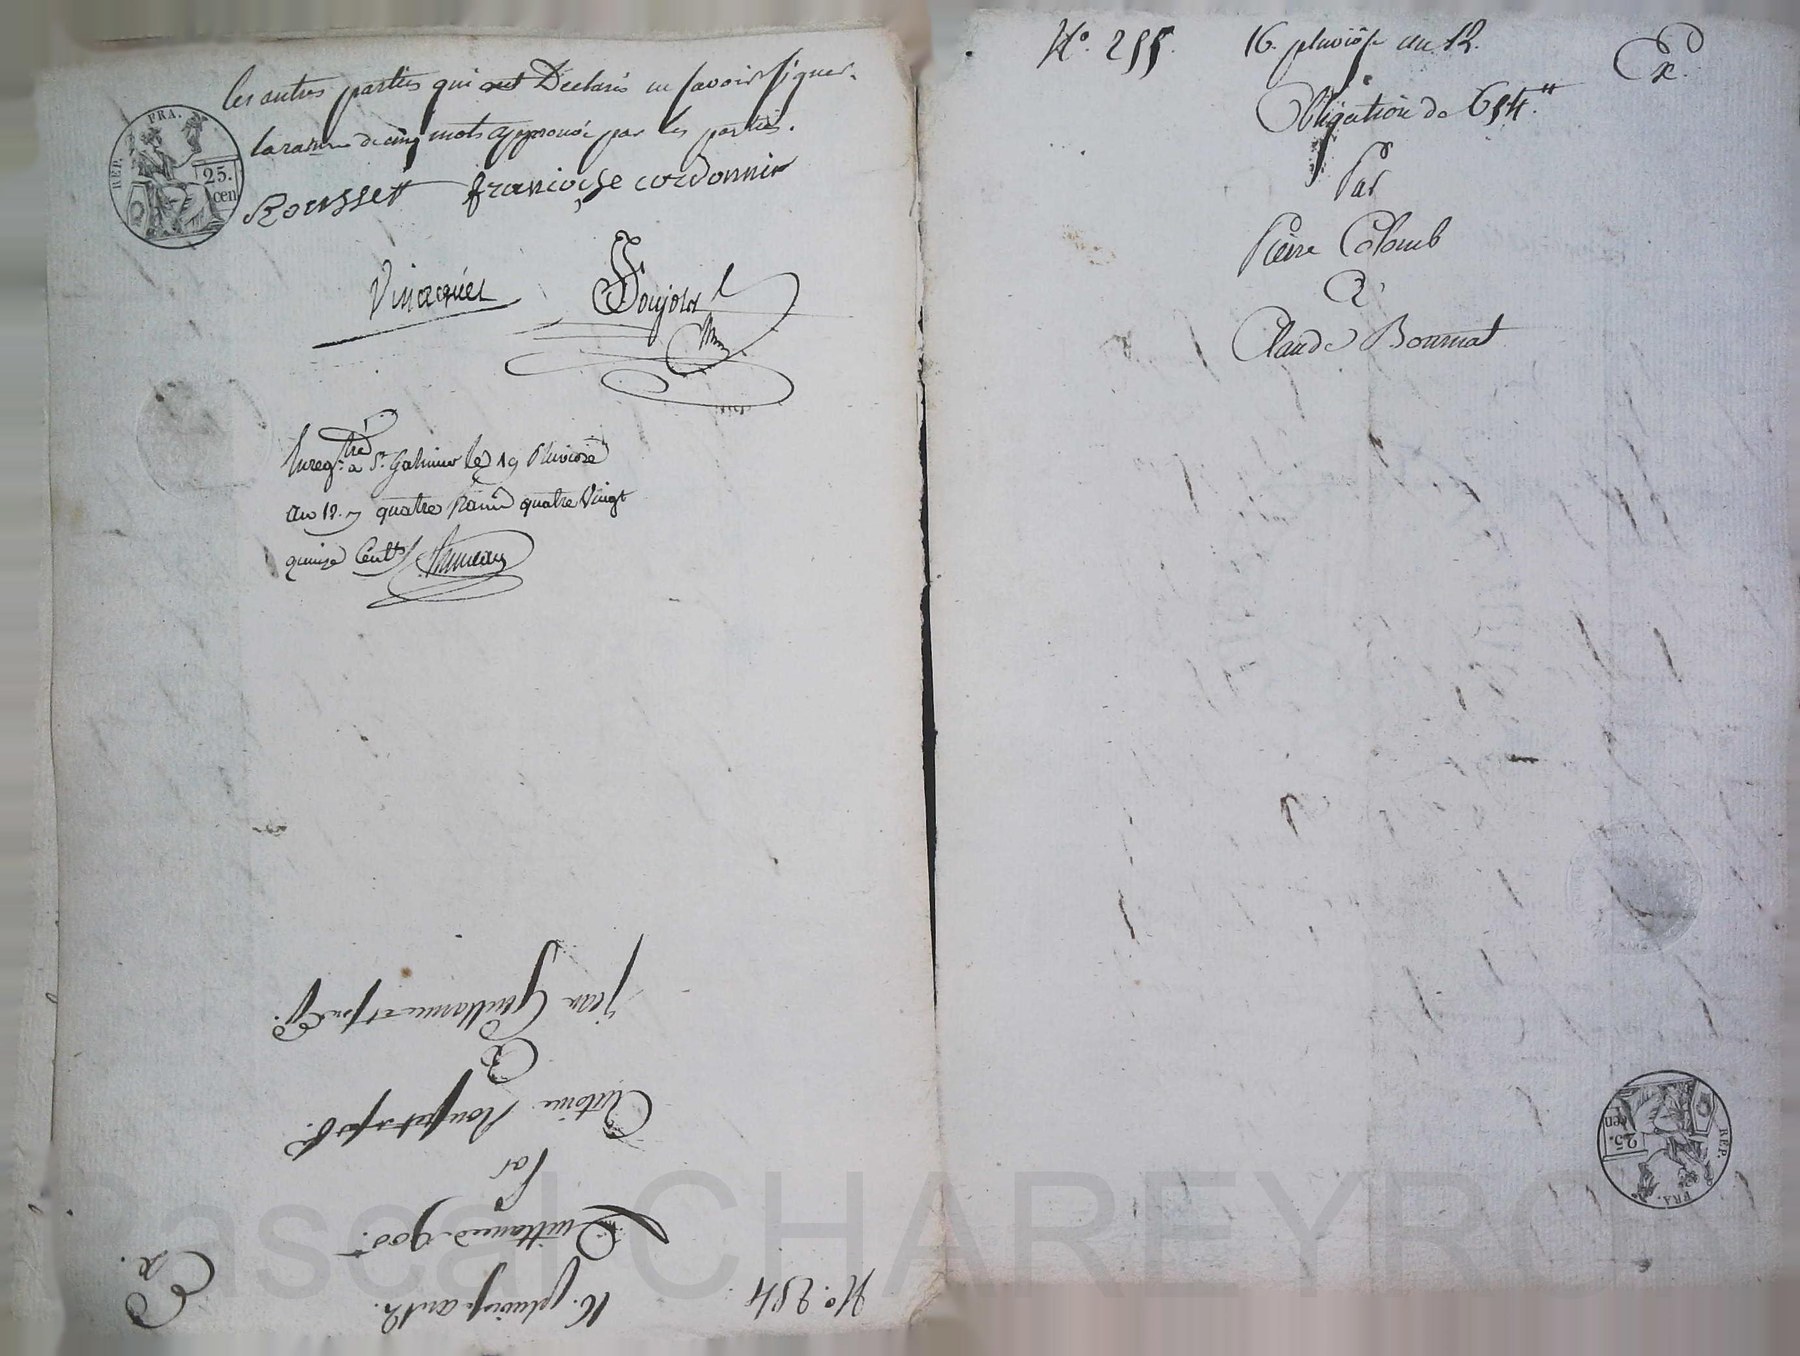 les autres parties qui ont Déclaré ne savoir signer.
la rature de cinq mots approuvée par les parties.
Rousset françoise cordonnir
Vinacquer Poujolat
Enreg.tré a St Galmier le 19 Pluviose
an 12. quatre francs quatre Vingt
quinze Cent.
REP. FRA.
25.
cen
N.° 254
16. pluviose an 12.
Ex.
Quittance 900
Par
Antoine Rousset
A
jean Guillaume et
N.° 255.
16. pluviose an 12.
Ex.
Obligation de 654.
Par
Pierre Colomb
A
Claude Bonnat
REP. FRA.
25.
cen
Pascal CHAREYRO